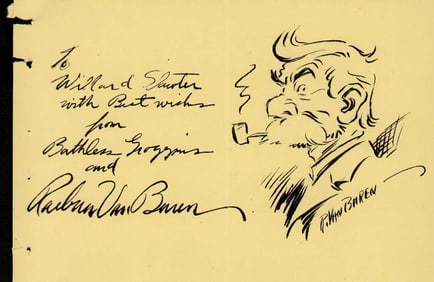 To
Willard Shuster
with Best wishes
from
Bathless Groggins
and
Raeburn Van Buren
R. VAN BUREN